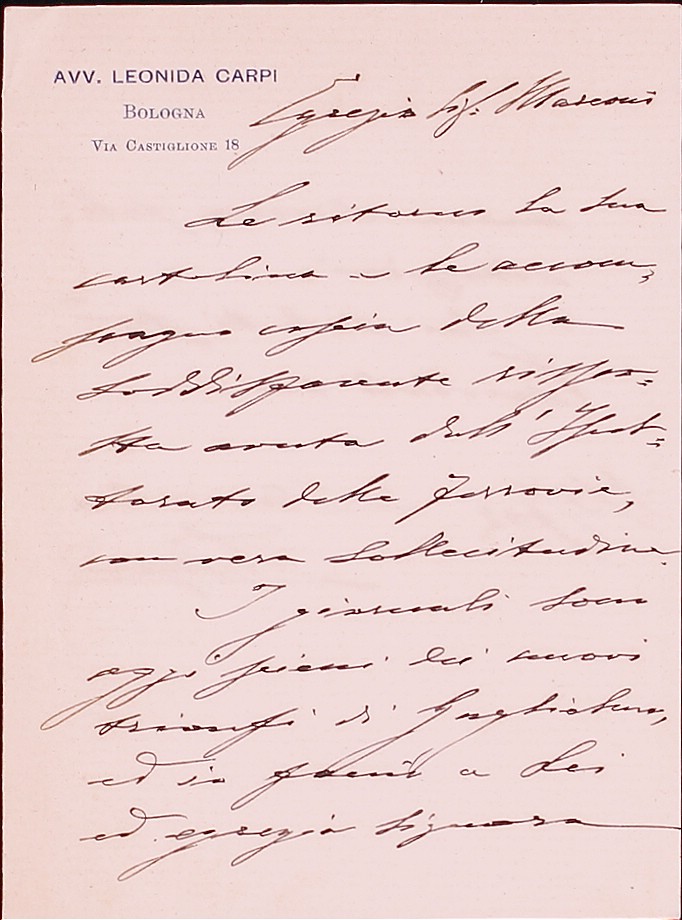 AVV. LEONIDA CARPI
BOLOGNA
VIA CASTIGLIONE 18
Egregio Sig. Marconi
Le ritorno la sua
cartolina e le accom,
pagno copia della
soddisfacente rispo=
sta avuta dall'Ispet=
torato delle Ferrovie,
con vera sollecitudine.
I giornali sono
oggi pieni dei nuovi
trionfi di Guglielmo,
ed io a Lei
ed egregia Signora